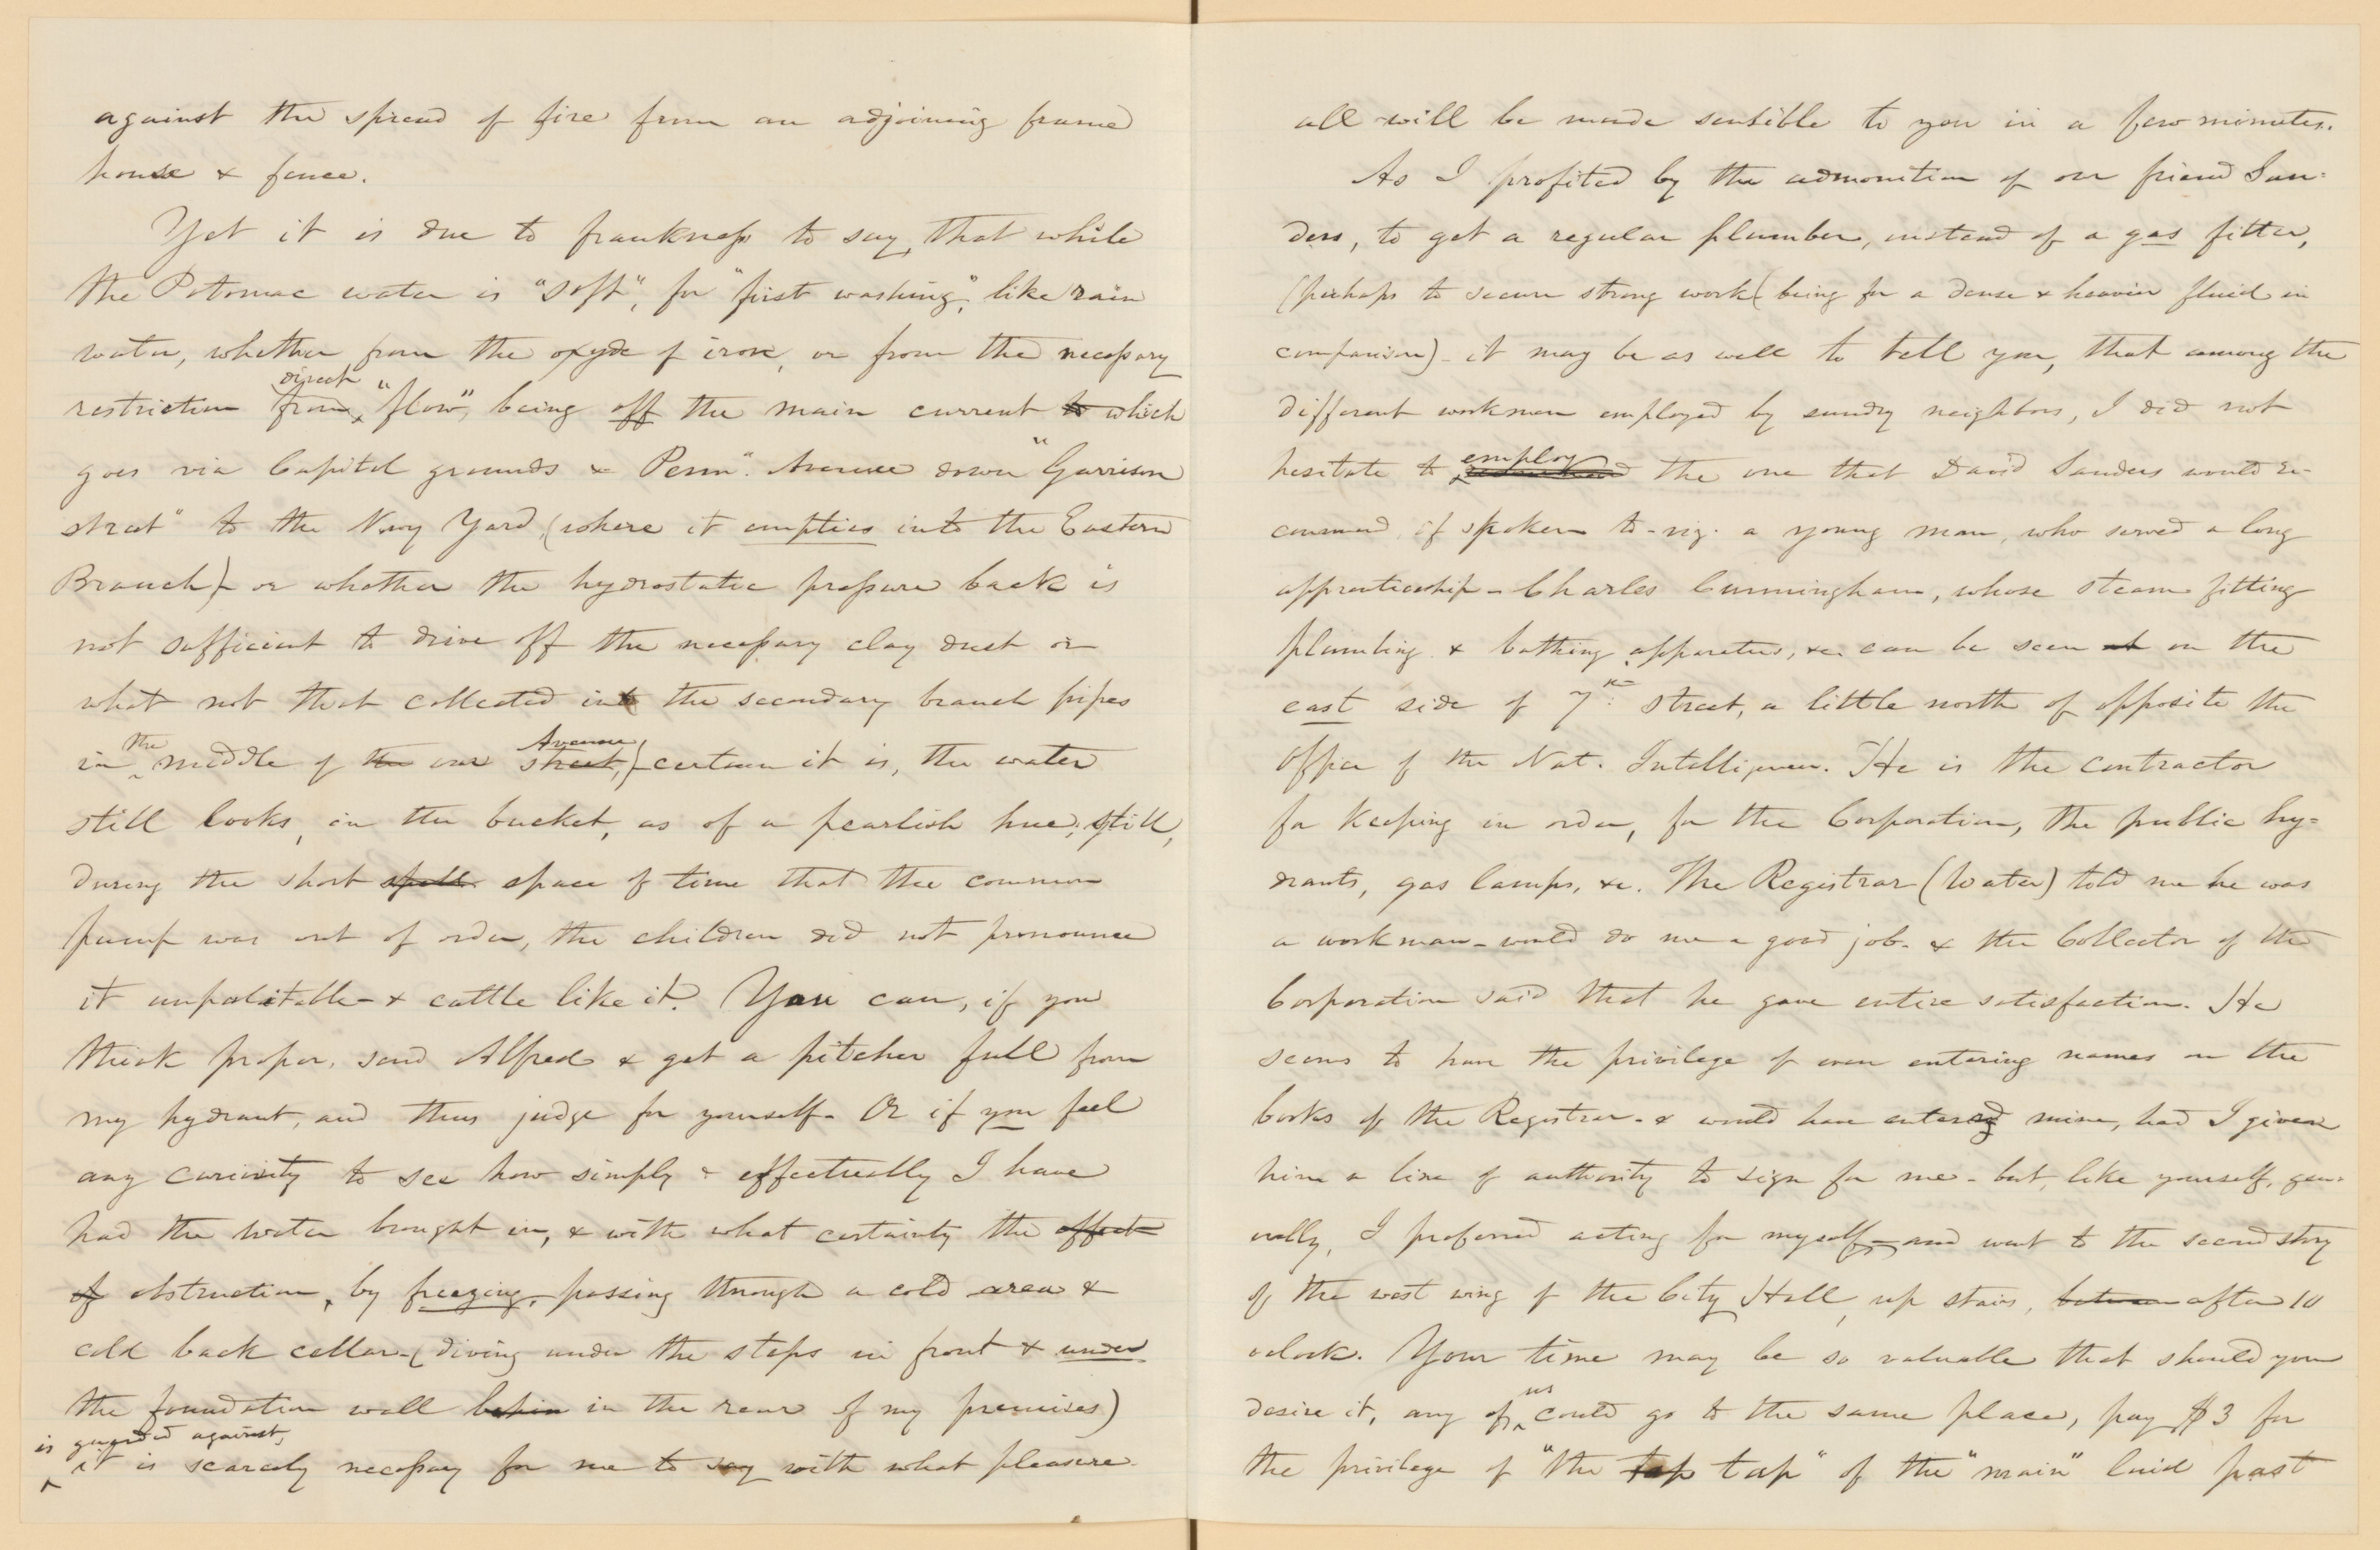 against the spread of fire from an adjoining frame
house & fence.
Yet it is due to frankness to say, that while
the Potomac water is "soft", for "first washing", like rain
water, whether from the oxyde of iron, or from the necessary
direct
restriction from "flow", being off the main current to which
goes via Capitol grounds & Penn. Avenue down "Garrison
street" to the Navy Yard, (where it empties into the Eastern
Branch) - or whether the hydrostatic pressure back is
not sufficient to drive off the necessary clay dust or
what not that collected into the secondary branch pipes
the Avenue
in middle of the our street,) - certain it is, the water
still looks, in the bucket, as of a pearlish hue; still,
during the short spell space of time that the common
pump was out of order, the children did not pronounce
it unpalatable - & cattle like it. You can, if you
think proper, send Alfred & get a pitcher full from
my hydrant, and thus judge for yourself. Or if you feel
any curiosity to see how simply & effectually I have
had the water brought in, & with what certainty the effect
of obstruction, by freezing, passing through a cold area &
cold back cellar - (diving under the steps in front & under
the foundation wall in the rear of my premises)
is guarded against,
it is scarcely necessary for me to say with what pleasure
all will be made sensible to you in a few minutes.
As I profited by the admonition of our friend San-
ders, to get a regular plumber, instead of a gas fitter,
(perhaps to secure strong work (being for a dense & heavier fluid in
comparison) - it may be as well to tell you, that among the
different workmen employed by sundry neighbors, I did not
employ
hesitate to the one that David Sanders would re-
commend, if spoken to - viz. a young man, who served a long
apprenticeship - Charles Cunningham, whose steam fitting
plumbing & bathing apparatus, &c. can be seen at on the
east side of 7th street, a little north of opposite the
Office of the Nat. Intelligencer. He is the contractor
for keeping in order, for the Corporation, the public hy-
drants, gas lamps, &c. The Registrar (Water) told me he was
a workman - would do me a good job - & the Collector of the
Corporation said that he gave entire satisfaction. He
seems to have the privilege of even entering names on the
books of the Registrar - & would have entered mine, had I given
him a line of authority to sign for me - but, like yourself, gen-
erally, I preferred acting for myself - and went to the second story
of the west wing of the City Hall, up stairs, between after 10
oclock. Your time may be so valuable that should you
us
desire it, any of could go to the same place, pay $3 for
the privilege of "the tap tap" of the "main" laid past